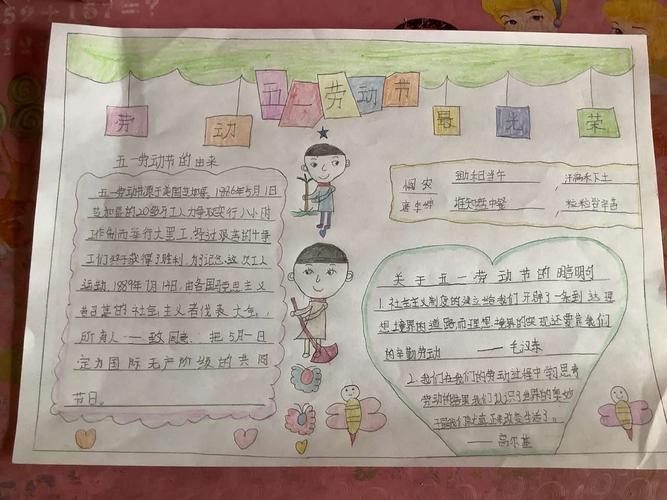 五一劳动节
劳动最光荣
五一劳动节的由来
五一劳动节源于美国芝加哥，1886年5月1日
芝加哥的20多万工人为争取实行八小时
工作制而举行大罢工，经过艰苦的斗争
工们终于获得了胜利，为了纪念这次工人
运动，1889年7月14日，由各国马思主义
者召集的社会主义者代表大会，
所有人一致同意、把5月一日
定为国际无产阶级的共同
节日。
悯农 锄禾日当午 ，汗滴禾下土
唐李绅 谁知盘中餐 ，粒粒皆辛苦
关于五一劳动节的
1.社会主义制度的建立给我们开辟了一条到达理
想境界的道路，而理想境界的实现还要靠我们
的辛勤劳动 ——毛泽东
2.我们在我们的劳动过程中学习思考
劳动的结果我们认识了世界的奥妙
于是我们就真正来改变生活了。
——高尔基